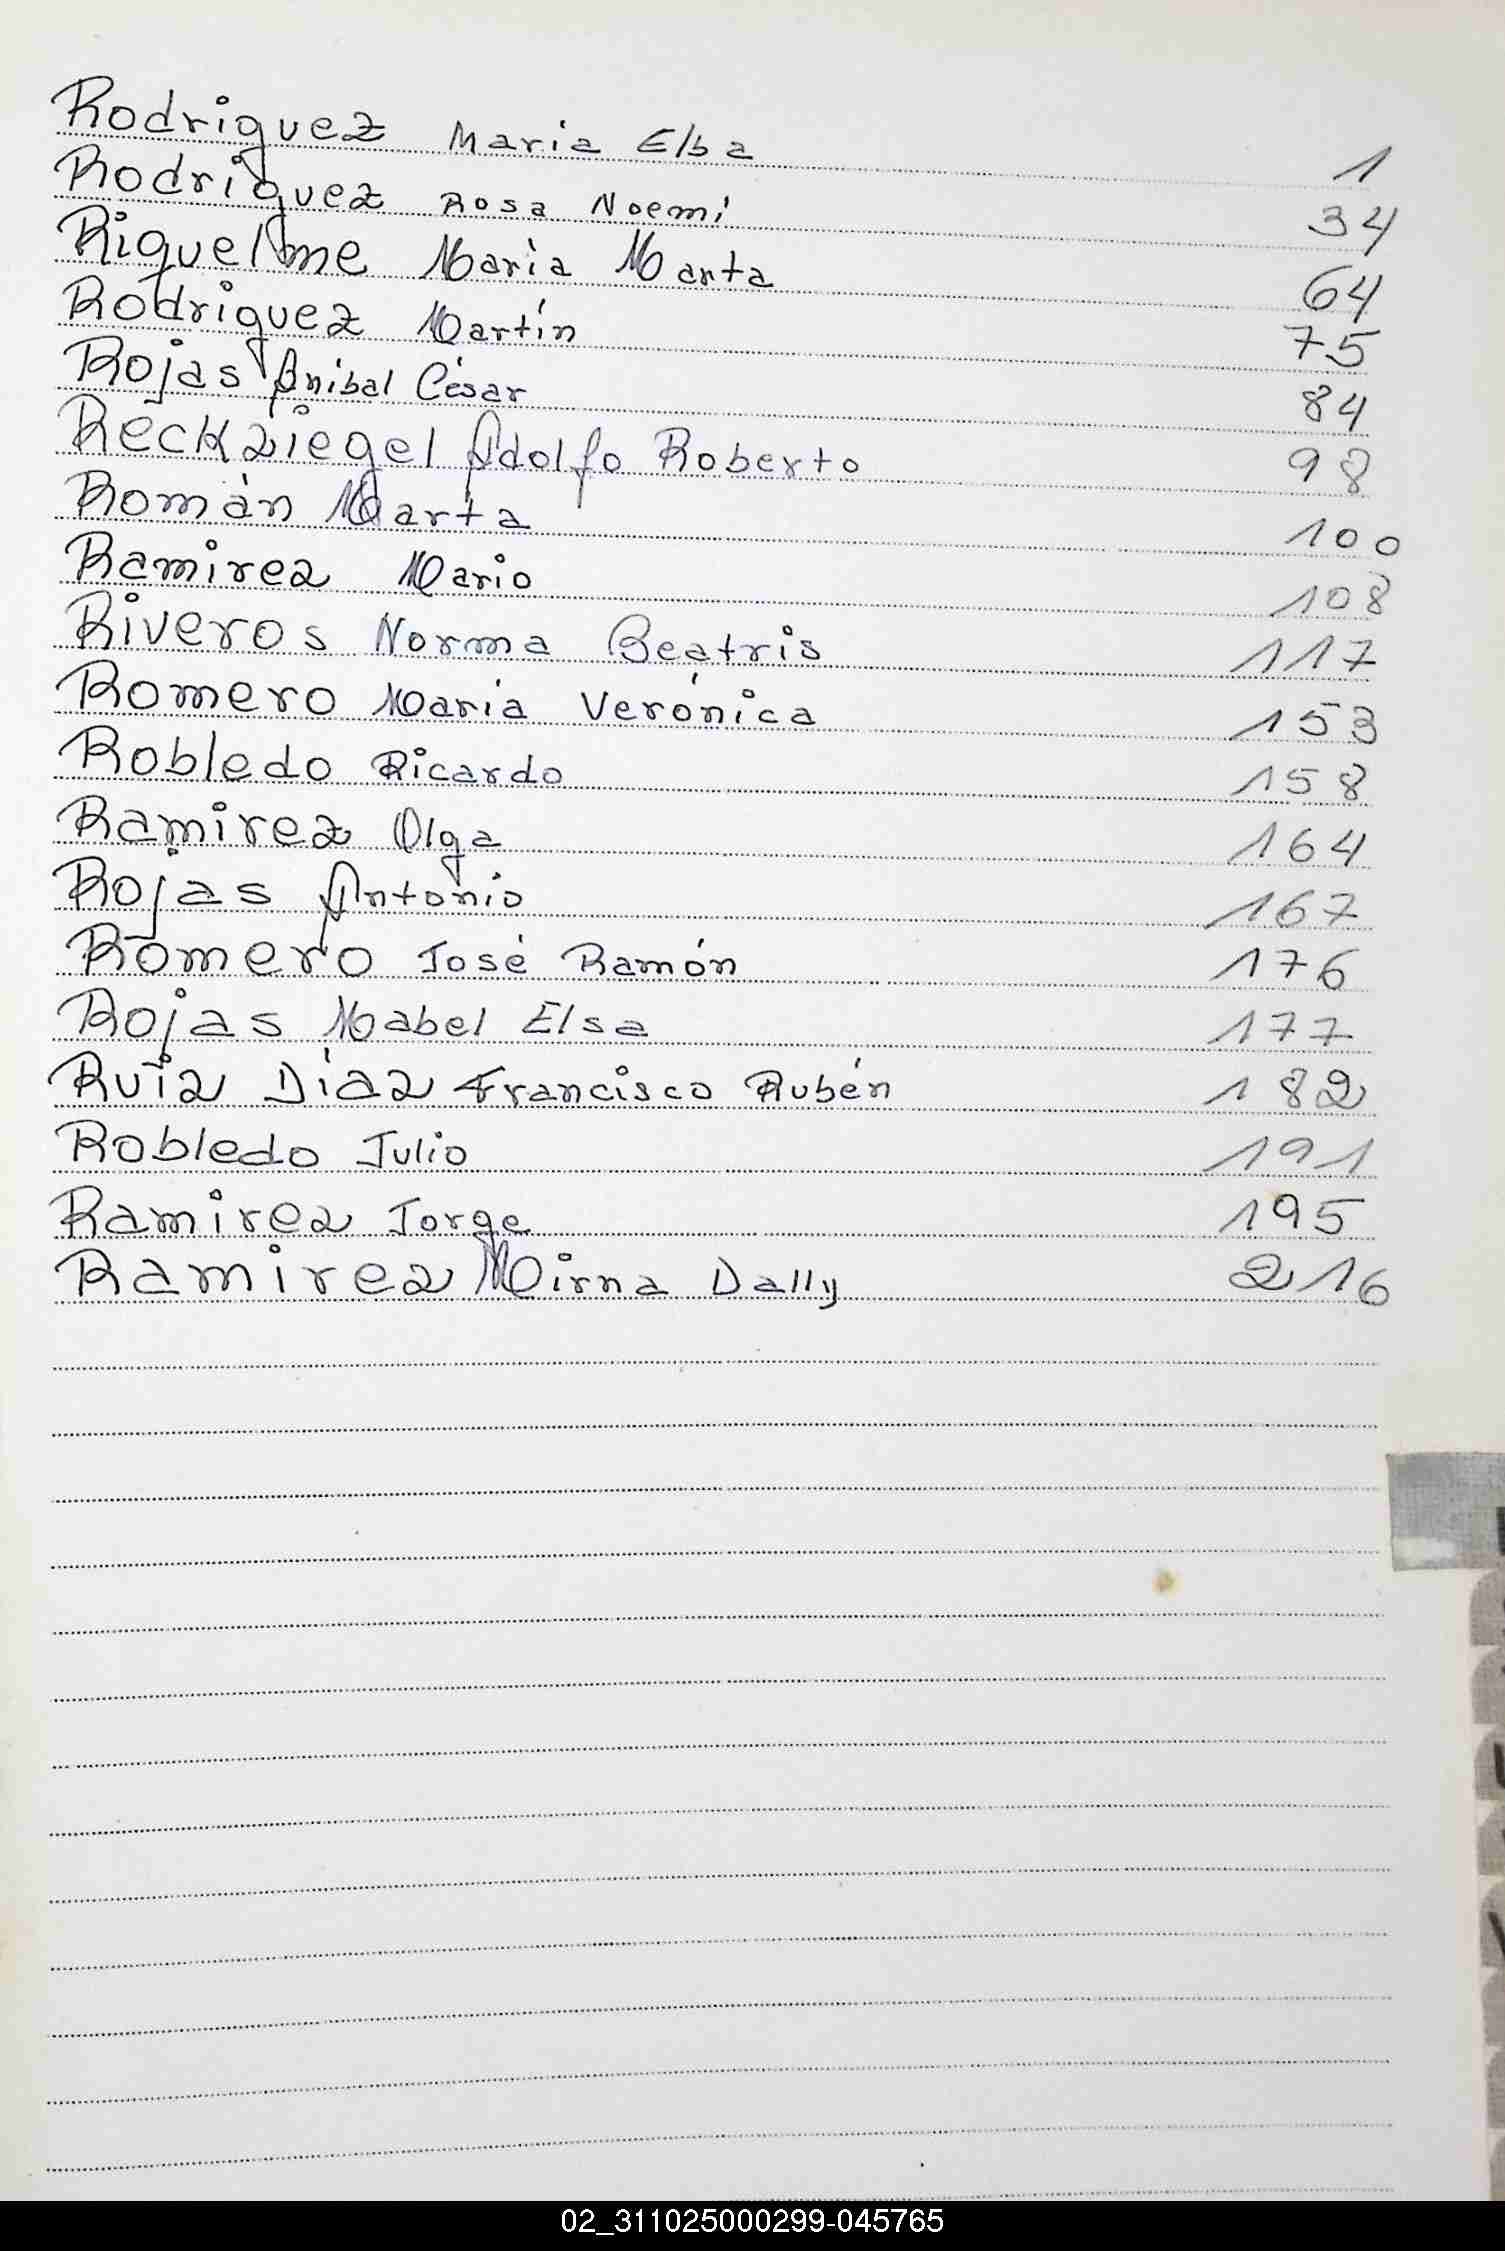 Rodriguez Maria Elba 1
Rodriguez Rosa Noemí 34
Riquelme María Marta 64
Rodriguez Martín 75
Rojas Anibal César 84
Reckziegel Adolfo Roberto 98
Román Marta 100
Ramirez Mario 108
Riveros Norma Beatris 117
Romero María Verónica 153
Robledo Ricardo 158
Ramirez Olga 164
Rojas Antonio 167
Romero José Ramón 176
Rojas Mabel Elsa 177
Ruiz Díaz Francisco Rubén 182
Robledo Julio 191
Ramirez Jorge 195
Ramirez Mirna Dally 216
02_311025000299-045765